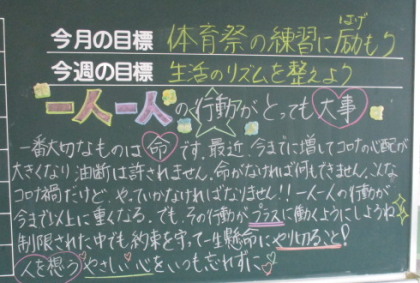 今月の目標 体育祭の練習に励もう
はげ
今週の目標 生活のリズムを整えよう
一人一人の行動がとっても大事
一番大切なものは命です。最近、今までに増してコロナの心配が
大きくなり油断は許されません。命がなければ何もできません。こんな
コロナ禍だけど、やっていかなければなりません!!一人一人の行動が
今まで以上に重くなる。でも、その行動がプラスに働くようにしようね
制限された中でも約束を守って一生懸命にやり切ること!
人を想うやさしい心をいつも忘れずに